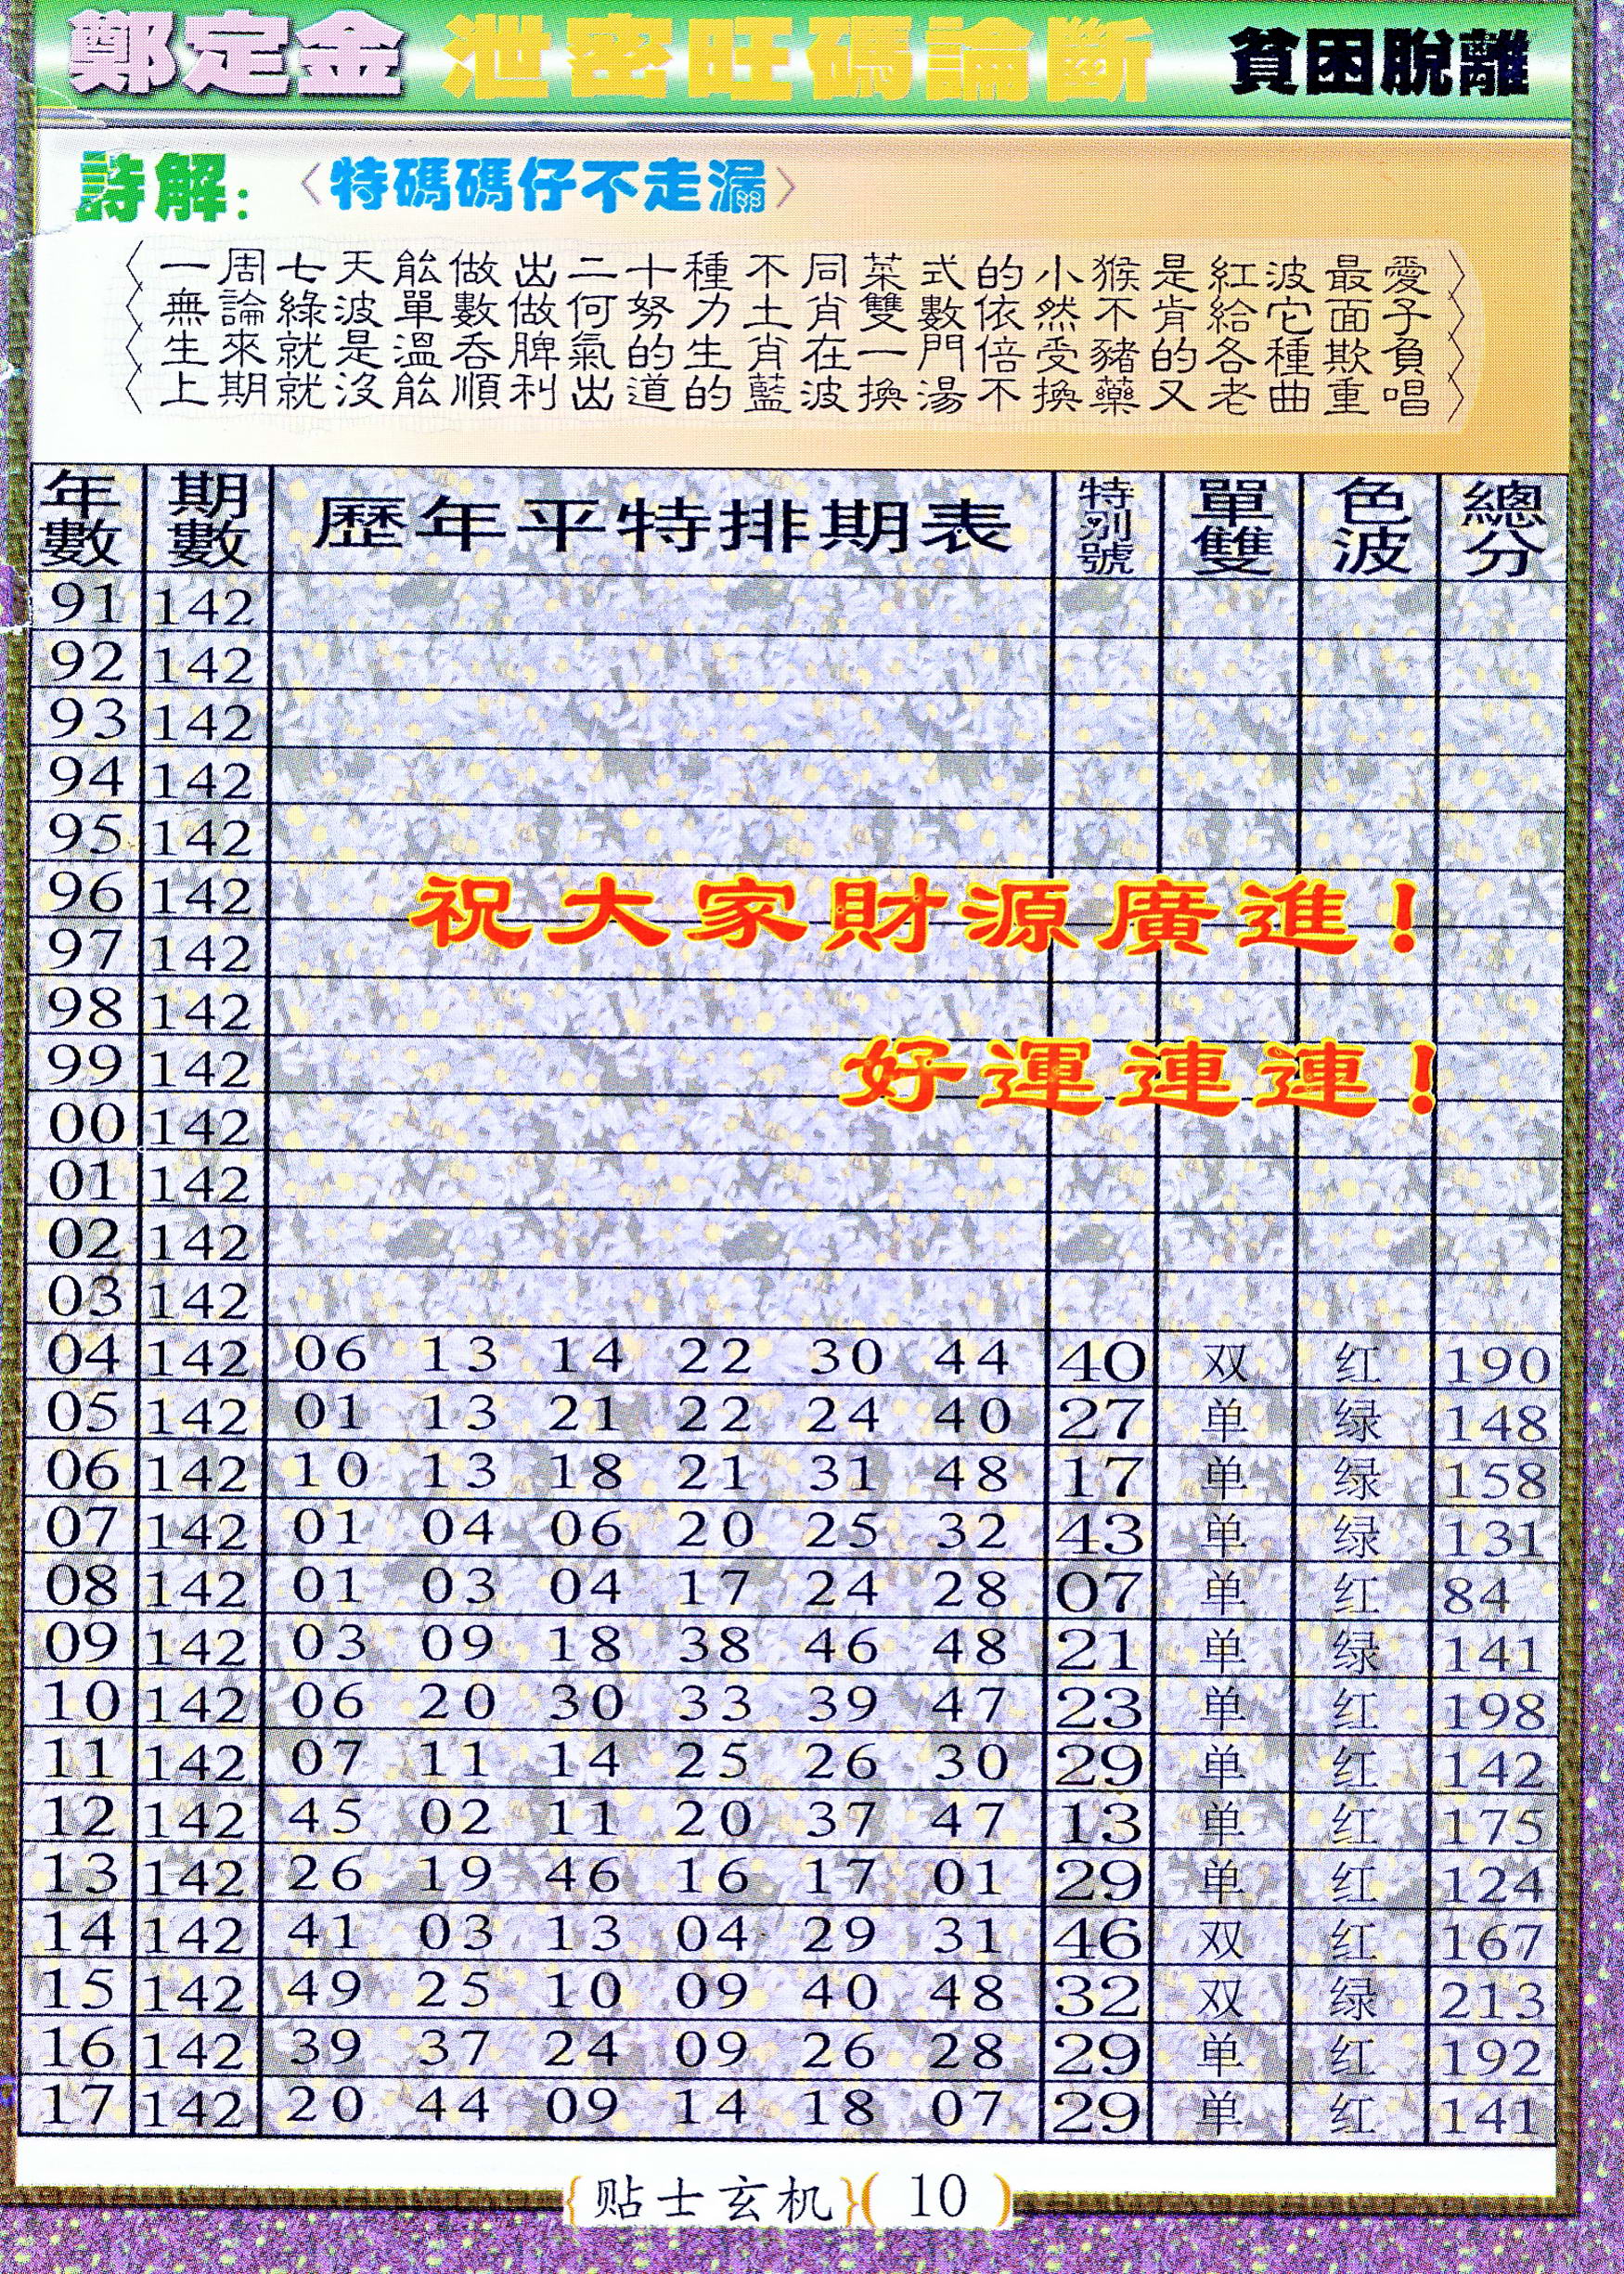 鄭定金 泄密旺碼論斷 貧困脫離
詩解: 〈特碼碼仔不走漏〉
〈一周七天能做出二十種不同菜式的小猴是紅波最愛〉
〈無論綠波單數做何努力土肖雙數依然不肯給它面子〉
〈生來就是溫吞脾氣的生肖在一門倍受豬的各種欺負〉
〈上期就沒能順利出道的藍波換湯不換藥又老曲重唱〉
年數 期數 歷年平特排期表 特別號 單雙 色波 總分
91 142
92 142
93 142
94 142
95 142
96 142
祝大家財源廣進!
97 142
98 142
99 142
好運連連!
00 142
01 142
02 142
03 142
04 142 06 13 14 22 30 44 40 双 红 190
05 142 01 13 21 22 24 40 27 单 绿 148
06 142 10 13 18 21 31 48 17 单 绿 158
07 142 01 04 06 20 25 32 43 单 绿 131
08 142 01 03 04 17 24 28 07 单 红 84
09 142 03 09 18 38 46 48 21 单 绿 141
10 142 06 20 30 33 39 47 23 单 红 198
11 142 07 11 14 25 26 30 29 单 红 142
12 142 45 02 11 20 37 47 13 单 红 175
13 142 26 19 46 16 17 01 29 单 红 124
14 142 41 03 13 04 29 31 46 双 红 167
15 142 49 25 10 09 40 48 32 双 绿 213
16 142 39 37 24 09 26 28 29 单 红 192
17 142 20 44 09 14 18 07 29 单 红 141
{贴士玄机}( 10 )